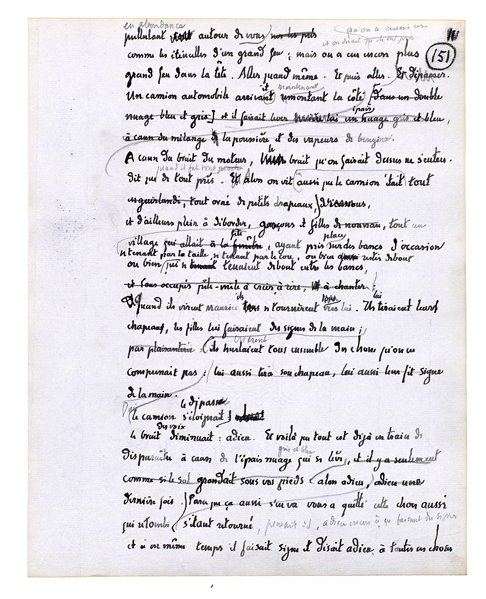 en abondance
pullulent autour de vous
151
comme les étincelles d'un grand feu ; mais on a eu encore plus
grand feu dans la tête. Aller quand même. Et puis aller. Et dépasser.
Un camion automobile arrivait maintenant la côte dans un double
nuage bleu et gris et il faisait lever un nuage épais gris et bleu,
à cause du mélange de la poussière et des vapeurs de benzine.
A cause du bruit du moteur, le bruit qu'on faisait dessus ne s'enten-
dit pas de tout près. Et alors on vit aussi que le camion était tout
enguirlandé, tout orné de petits drapeaux,
et d'ailleurs plein à déborder, garçons et filles de nouveau, tout un
village qui allait à la fête, ayant pris place sur des bancs d'occasion
se tenant par la taille, se tenant par le cou, ou bien restés debout
ou bien qui se tenaient debout entre les bancs,
et tous occupés pêle-mêle à crier, à rire, à chanter ;
Quand ils virent Maurice ils se tournèrent vers lui. Ils tiraient leurs
chapeaux, les filles lui faisaient des signes de la main ;
par plaisanterie ils hurlaient tous ensemble des choses qu'on ne
comprenait pas ; lui aussi tira son chapeau, lui aussi leur fit signe
de la main.
le dépassa
le camion s'éloignait
des voix
le bruit diminuait : adieu. Et voilà que tout est déjà en train de
disparaître à cause de l'épais nuage gris et bleu qui se lève, et il y a seulement
comme si le sol grondait sous vos pieds alors adieu, adieu une
dernière fois. Parce que ça aussi s'en va vous a quitté cette chose aussi
qui retombe s'étant retourné, pensait-il, adieu encore
et en même temps il faisait signe et disait adieu à toutes ces choses